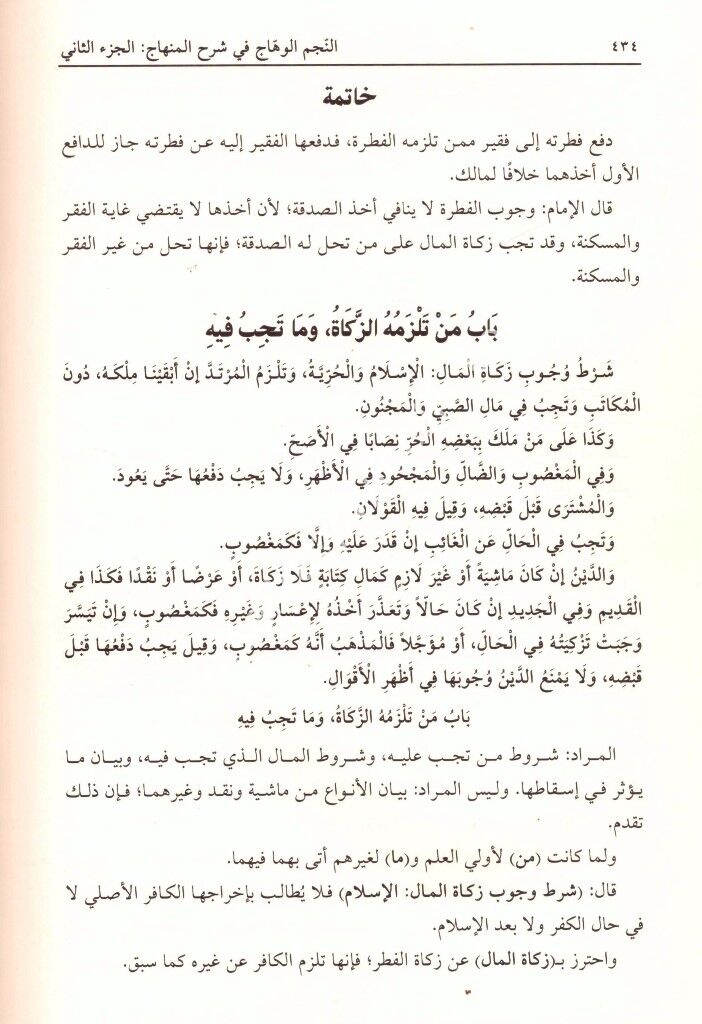 ٤٣٤ النّجم الوهّاج في شرح المنهاج: الجزء الثاني
خاتمة
دفع فطرته إلى فقير ممن تلزمه الفطرة، فدفعها الفقير إليه عن فطرته جاز للدافع
الأول أخذهما خلافًا لمالك.
قال الإمام: وجوب الفطرة لا ينافي أخذ الصدقة؛ لأن أخذها لا يقتضي غاية الفقر
والمسكنة، وقد تجب زكاة المال على من تحل له الصدقة؛ فإنها تحل من غير الفقر
والمسكنة.
بَابُ مَنْ تَلْزَمُهُ الزَّكَاةُ، وَمَا تَجِبُ فِيهِ
شَرْطُ وُجُوبِ زَكَاةِ الْمَالِ: الْإِسْلَامُ وَالْحُرِّيَّةُ، وَتَلْزَمُ الْمُرْتَدَّ إِنْ أَبْقَيْنَا مِلْكَهُ، دُونَ
الْمُكَاتَبِ وَتَجِبُ فِي مَالِ الصَّبِيِّ وَالْمَجْنُونِ.
وَكَذَا عَلَى مَنْ مَلَكَ بِبَعْضِهِ الْحُرِّ نِصَابًا فِي الْأَصَحِّ.
وَفِي الْمَغْصُوبِ وَالضَّالِّ وَالْمَجْحُودِ فِي الْأَظْهَرِ، وَلَا يَجِبُ دَفْعُهَا حَتَّى يَعُودَ.
وَالْمُشْتَرَى قَبْلَ قَبْضِهِ، وَقِيلَ فِيهِ الْقَوْلَانِ.
وَتَجِبُ فِي الْحَالِّ عَنِ الْغَائِبِ إِنْ قَدَرَ عَلَيْهِ وَإِلَّا فَكَمَغْصُوبٍ.
وَالدَّيْنُ إِنْ كَانَ مَاشِيَةً أَوْ غَيْرَ لَازِمٍ كَمَالِ كِتَابَةٍ فَلَا زَكَاةَ، أَوْ عَرْضًا أَوْ نَقْدًا فَكَذَا فِي
الْقَدِيمِ وَفِي الْجَدِيدِ إِنْ كَانَ حَالًّا وَتَعَذَّرَ أَخْذُهُ لِإِعْسَارٍ وَغَيْرِهِ فَكَمَغْصُوبٍ، وَإِنْ تَيَسَّرَ
وَجَبَتْ تَزْكِيَتُهُ فِي الْحَالِّ، أَوْ مُؤَجَّلاً فَالْمَذْهَبُ أَنَّهُ كَمَغْصُوبٍ، وَقِيلَ يَجِبُ دَفْعُهَا قَبْلَ
قَبْضِهِ، وَلَا يَمْنَعُ الدَّيْنُ وُجُوبَهَا فِي أَظْهَرِ الْأَقْوَالِ.
بَابُ مَنْ تَلْزَمُهُ الزَّكَاةُ، وَمَا تَجِبُ فِيهِ
المراد: شروط من تجب عليه، وشروط المال الذي تجب فيه، وبيان ما
يؤثر في إسقاطها. وليس المراد: بيان الأنواع من ماشية ونقد وغيرهما؛ فإن ذلك
تقدم.
ولما كانت (من) لأولي العلم و(ما) لغيرهم أتى بهما فيهما.
قال: (شرط وجوب زكاة المال: الإسلام) فلا يُطالب بإخراجها الكافر الأصلي لا
في حال الكفر ولا بعد الإسلام.
واحترز بـ(زكاة المال) عن زكاة الفطر؛ فإنها تلزم الكافر عن غيره كما سبق.